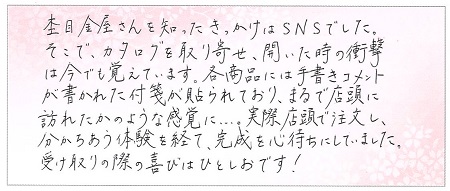 杢目金屋さんを知ったきっかけはSNSでした。
そこで、カタログを取り寄せ、開いた時の衝撃
は今でも覚えています。各商品には手書きコメント
が書かれた付箋が貼られており、まるで店頭に
訪れたかのような感覚に…。実際店頭で注文し、
分かちあう体験を経て、完成を心待ちにしていました。
受け取りの際の喜びはひとしおです!